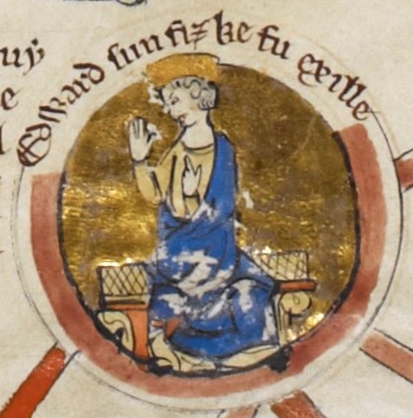 uy
e
Edward sun fiz ke fu exille